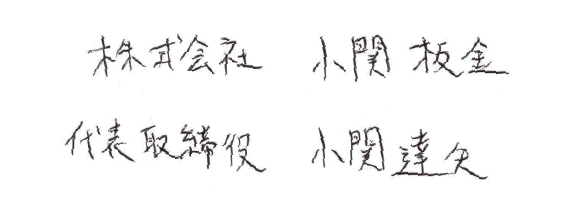 株式会社 小関板金
代表取締役 小関達矢